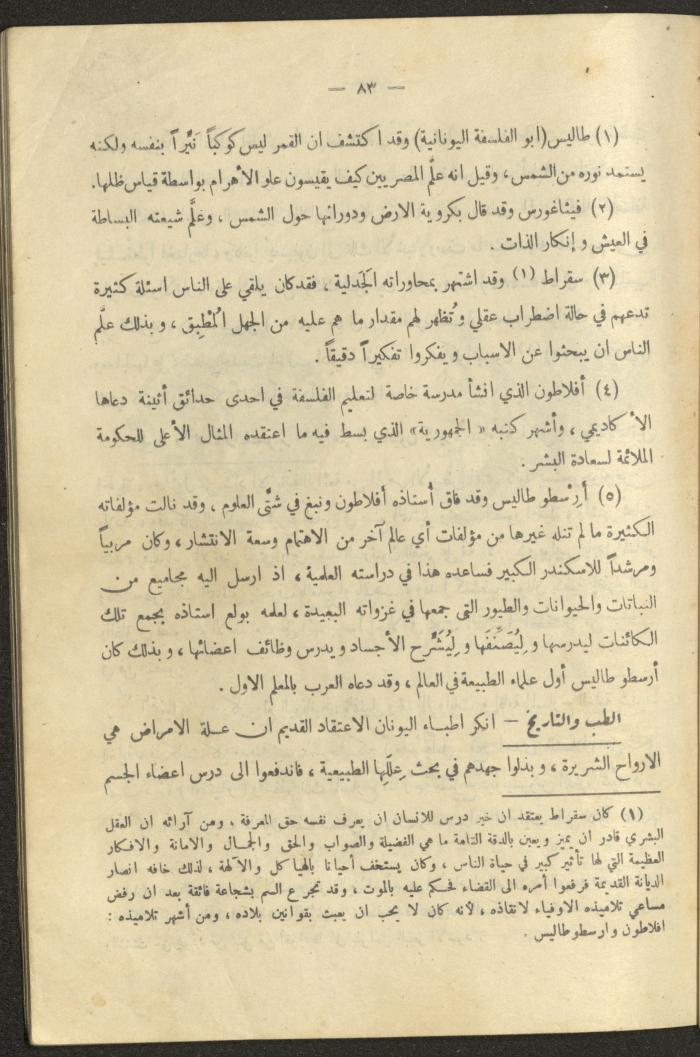 — ٨٣ —
(١) طاليس (ابو الفلسفة اليونانية) وقد اكتشف ان القمر ليس كوكباً نَيِّراً بنفسه ولكنه
يستمد نوره من الشمس، وقيل انه علَّم المصريين كيف يقيسون علو الأهرام بواسطة قياس ظلها.
(٢) فيثاغورس وقد قال بكروية الارض ودورانها حول الشمس، وعلَّم شيعته البساطة
في العيش وإنكار الذات.
(٣) سقراط (١) وقد اشتهر بمحاوراته الجَدلية، فقد كان يلقي على الناس اسئلة كثيرة
تدعهم في حالة اضطراب عقلي وتُظهر لهم مقدار ما هم عليه من الجهل المُطْبِق، وبذلك علَّم
الناس ان يبحثوا عن الاسباب ويفكروا تفكيراً دقيقاً.
(٤) أفلاطون الذي انشأ مدرسة خاصة لتعليم الفلسفة في احدى حدائق أثينة دعاها
الأكاديمي، وأشهر كتبه «الجمهورية» الذي بسط فيه ما اعتقده المثال الأعلى للحكومة
الملائمة لسعادة البشر.
(٥) أَرِسْطو طاليس وقد فاق أستاذه أفلاطون ونبغ في شتَّى العلوم، وقد نالت مؤلفاته
الكثيرة ما لم تنله غيرها من مؤلفات أي عالم آخر من الاهتمام وسعة الانتشار، وكان مربياً
ومرشداً للاسكندر الكبير فساعده هذا في دراسته العلمية، اذ ارسل اليه مجاميع من
النباتات والحيوانات والطيور التي جمعها في غزواته البعيدة، لعلمه بولع استاذه بجمع تلك
الكائنات ليدرسها ولِيُصَنِّفَها ولِيُشَرِّح الأجساد ويدرس وظائف اعضائها، وبذلك كان
أرسطو طاليس أول علماء الطبيعة في العالم، وقد دعاه العرب بالمعلم الاول.
الطب والتاريخ — انكر اطباء اليونان الاعتقاد القديم ان علة الامراض هي
الارواح الشريرة، وبذلوا جهدهم في بحث عِلَلِها الطبيعية، فاندفعوا الى درس اعضاء الجسم
(١) كان سقراط يعتقد ان خير درس للانسان ان يعرف نفسه حق المعرفة، ومن آرائه ان العقل
البشري قادر ان يميز ويعين بالدقة التامة ما هي الفضيلة والصواب والحق والجمال والامانة والافكار
العظيمة التي لها تأثير كبير في حياة الناس، وكان يستخف أحيانا بالهياكل والآلهة، لذلك خافه انصار
الديانة القديمة فرفعوا أمره الى القضاء فحكم عليه بالموت، وقد تجرع السم بشجاعة فائقة بعد ان رفض
مساعي تلاميذه الاوفياء لانقاذه، لأنه كان لا يحب ان يعبث بقوانين بلاده، ومن أشهر تلاميذه:
افلاطون وارسطو طاليس.